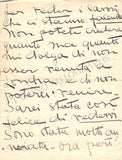 per veder i lavori
che ci stanno facendo
non potete credere
quanto mai quanto
mi dolga di non
essere venuta
prima e di non
potervi venire
Sarei stata così
felice di vedervi
Sono stata molto am
malata - ora però